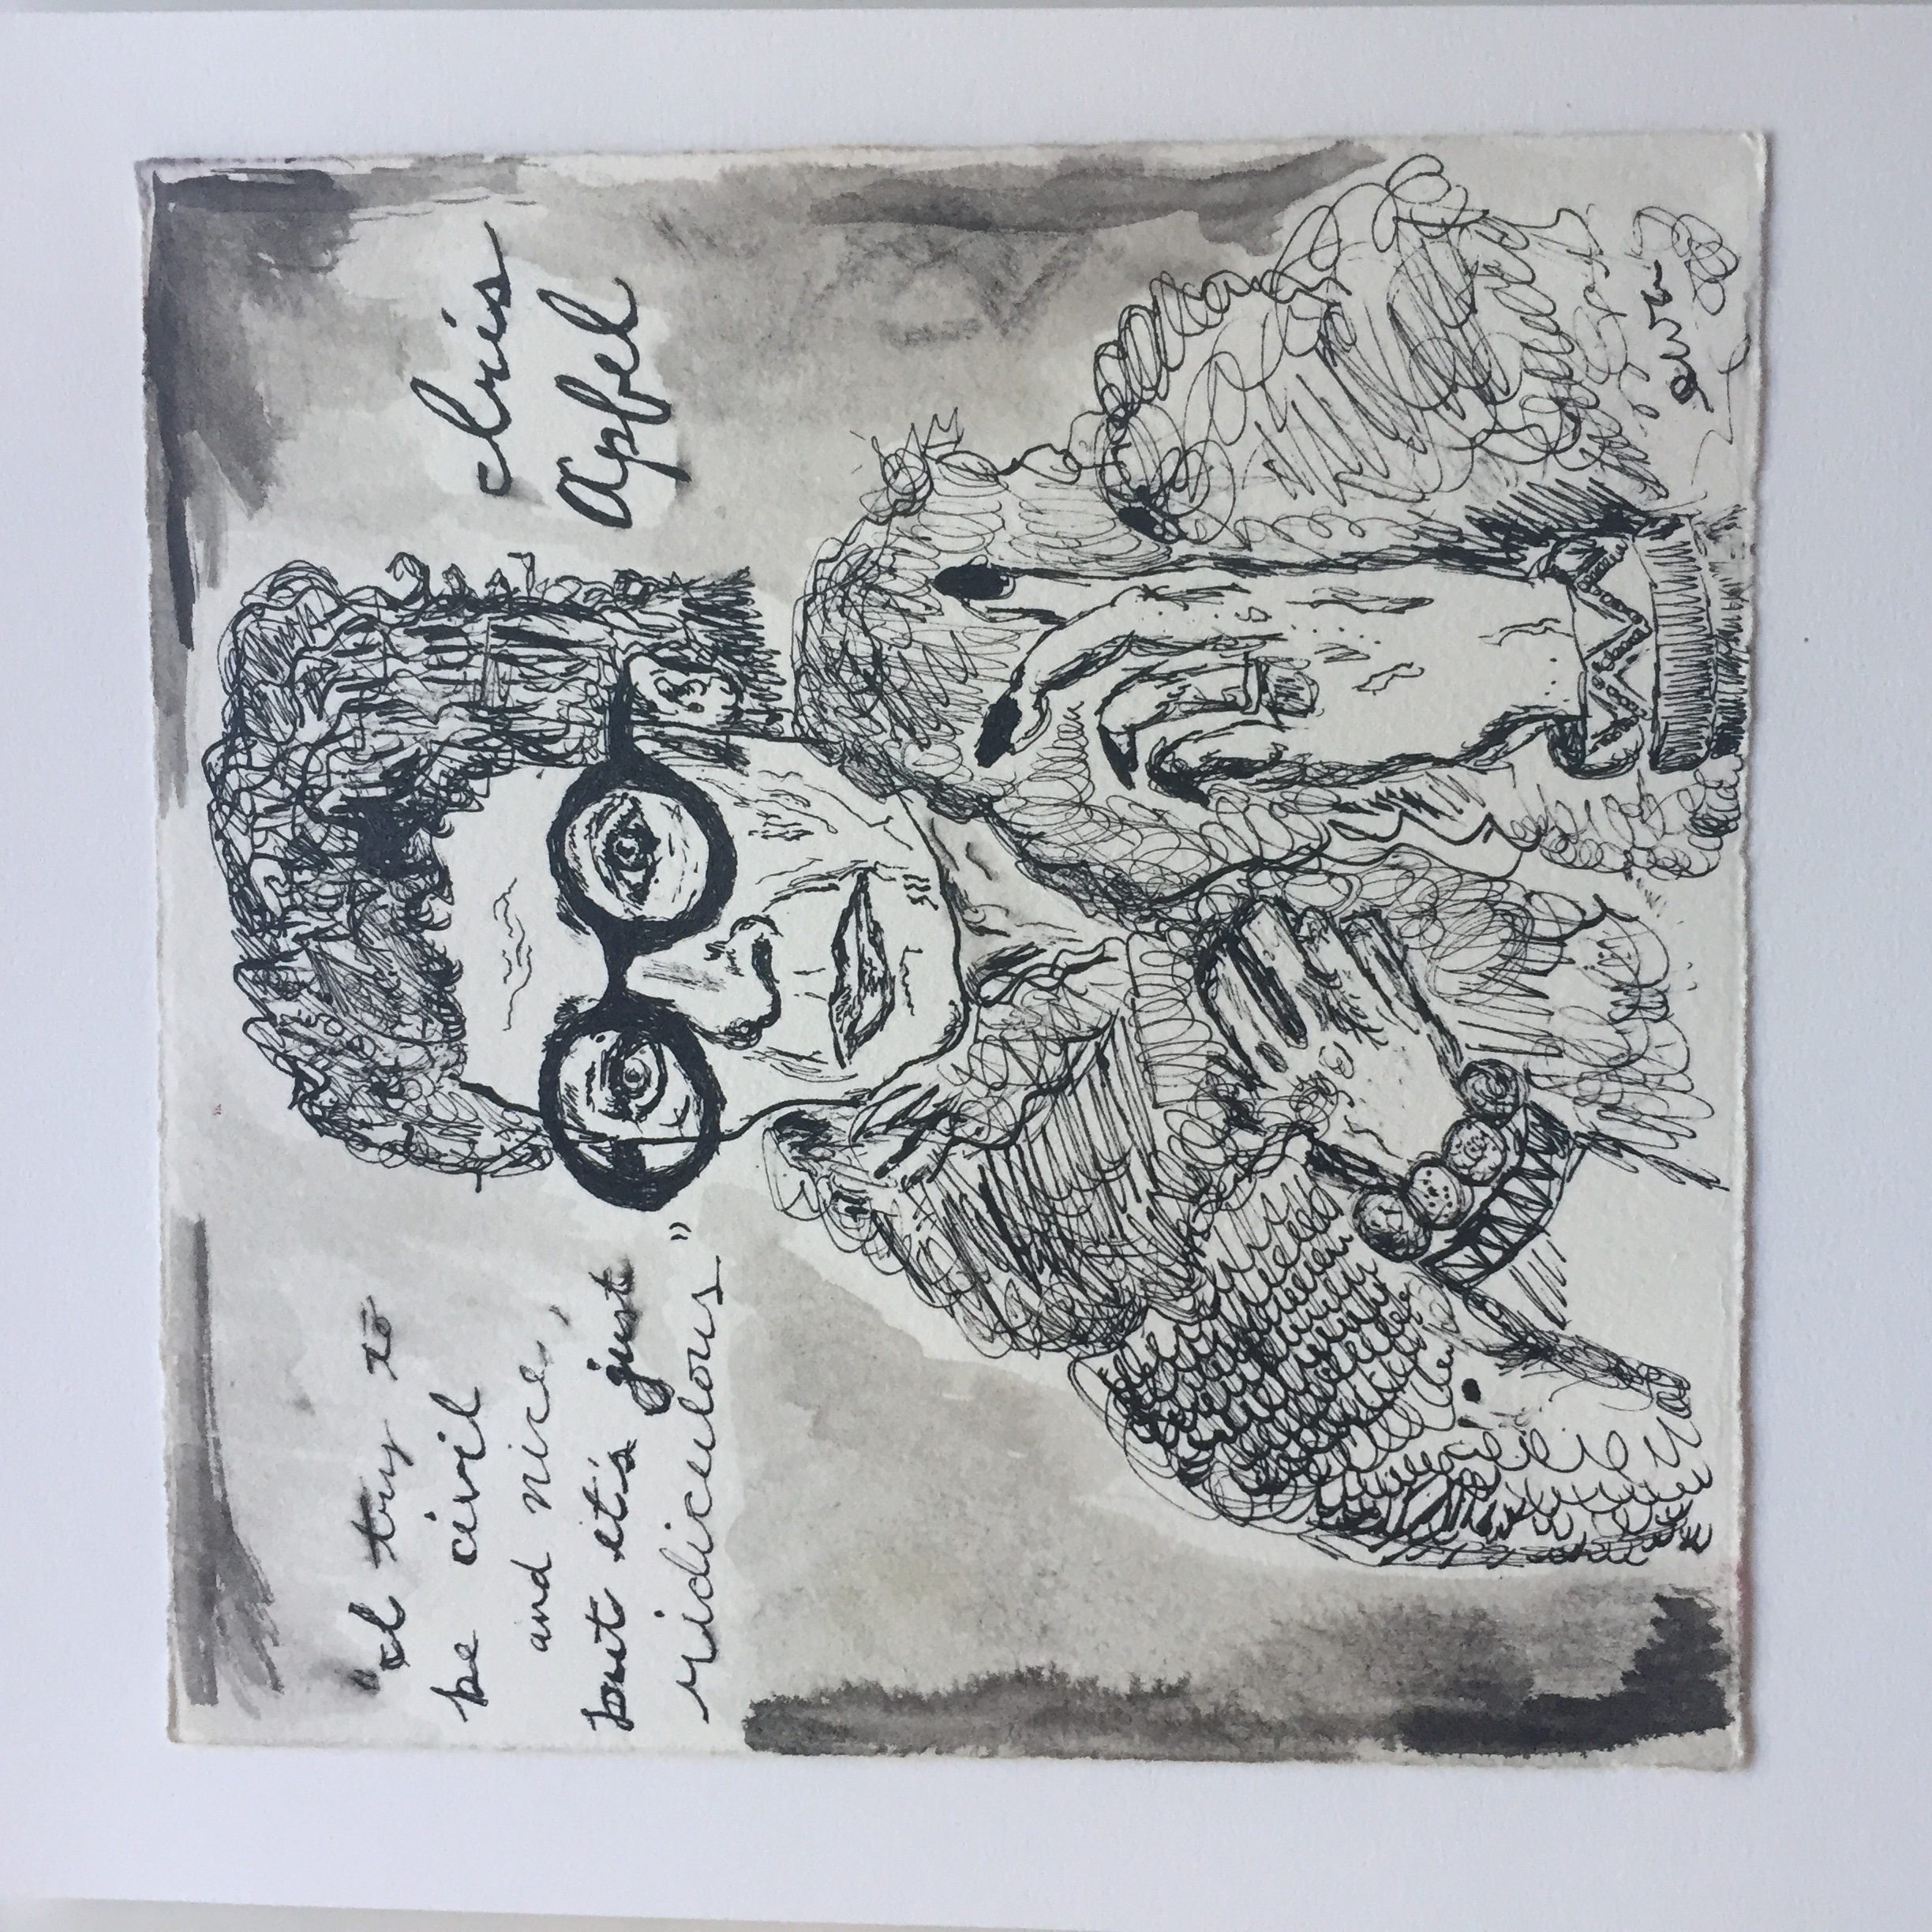 "I try to
be civil
and nice,
but it's just
ridiculous"
Iris
Apfel